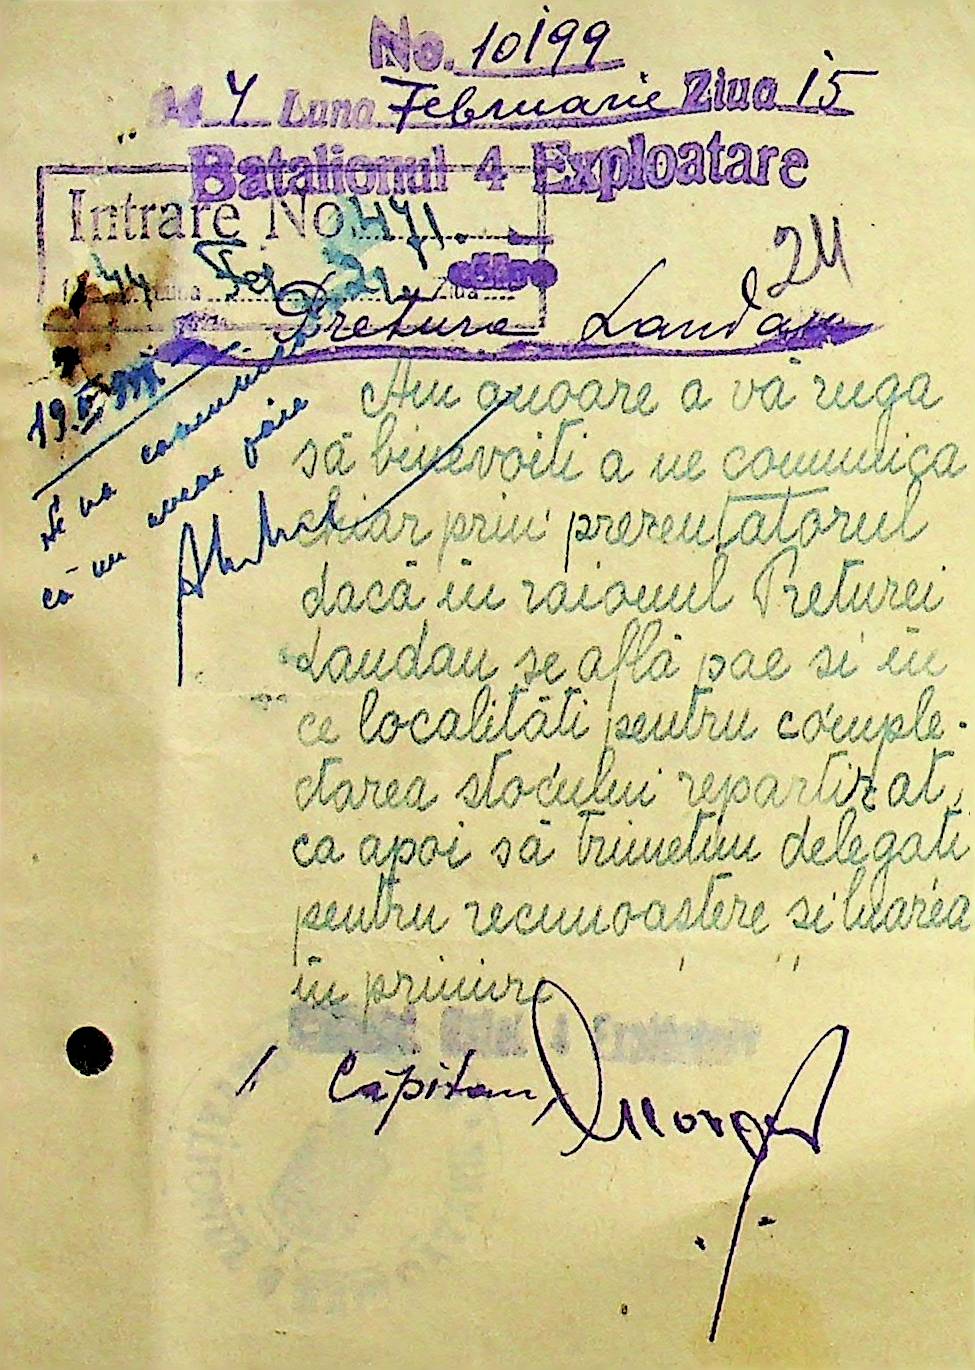 No. 10199
1944 Luna Februarie Ziua 15
Batalionul 4 Exploatare
Intrare No. 471
44 Luna Feb 21 Ziua
24
Pretura Landau
19.II
Se va comunica
că nu avem paie
Am onoare a vă ruga
să binevoiti a ne comunica
chiar prin prezentatorul
dacă în raionul Preturei
Landau se află pae si în
ce localităti pentru comple-
tarea stocului repartizat,
ca apoi să trimetem delegati
pentru recunoastere si luarea
în primire
Capitan,